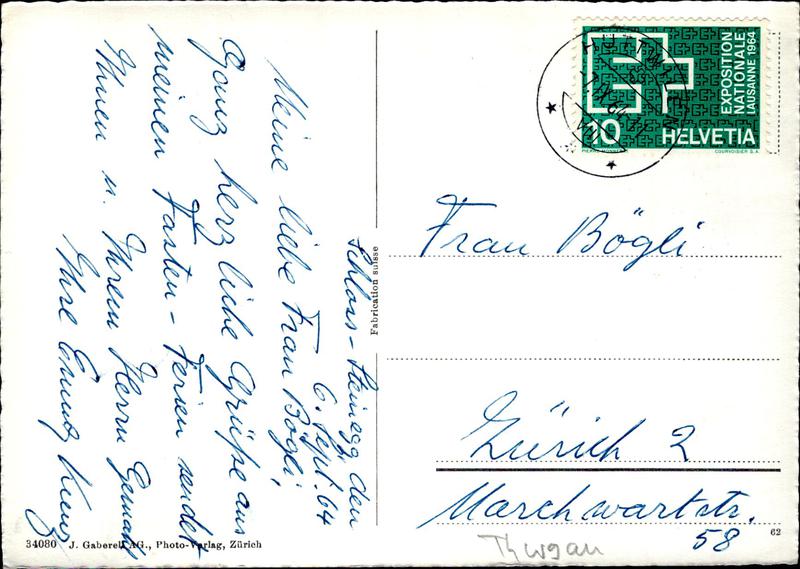 Schloss-Steinegg, den
6. Sept. 64
Meine liebe Frau Bögli,
Ganz herzliche Grüße aus
meinen Fasten-Ferien sendet
Ihnen u. Ihrem Herrn Gemahl
Ihre Emmy Kunz
Fabrication suisse
34080 J. Gaberell AG., Photo-Verlag, Zürich
HÜTTWILEN
-7.IX.64-
EXPOSITION
NATIONALE
LAUSANNE 1964
10 HELVETIA
COURVOISIER S.A.
Frau Bögli
Zürich 2
Marchwartstr.
58
62
Thurgau